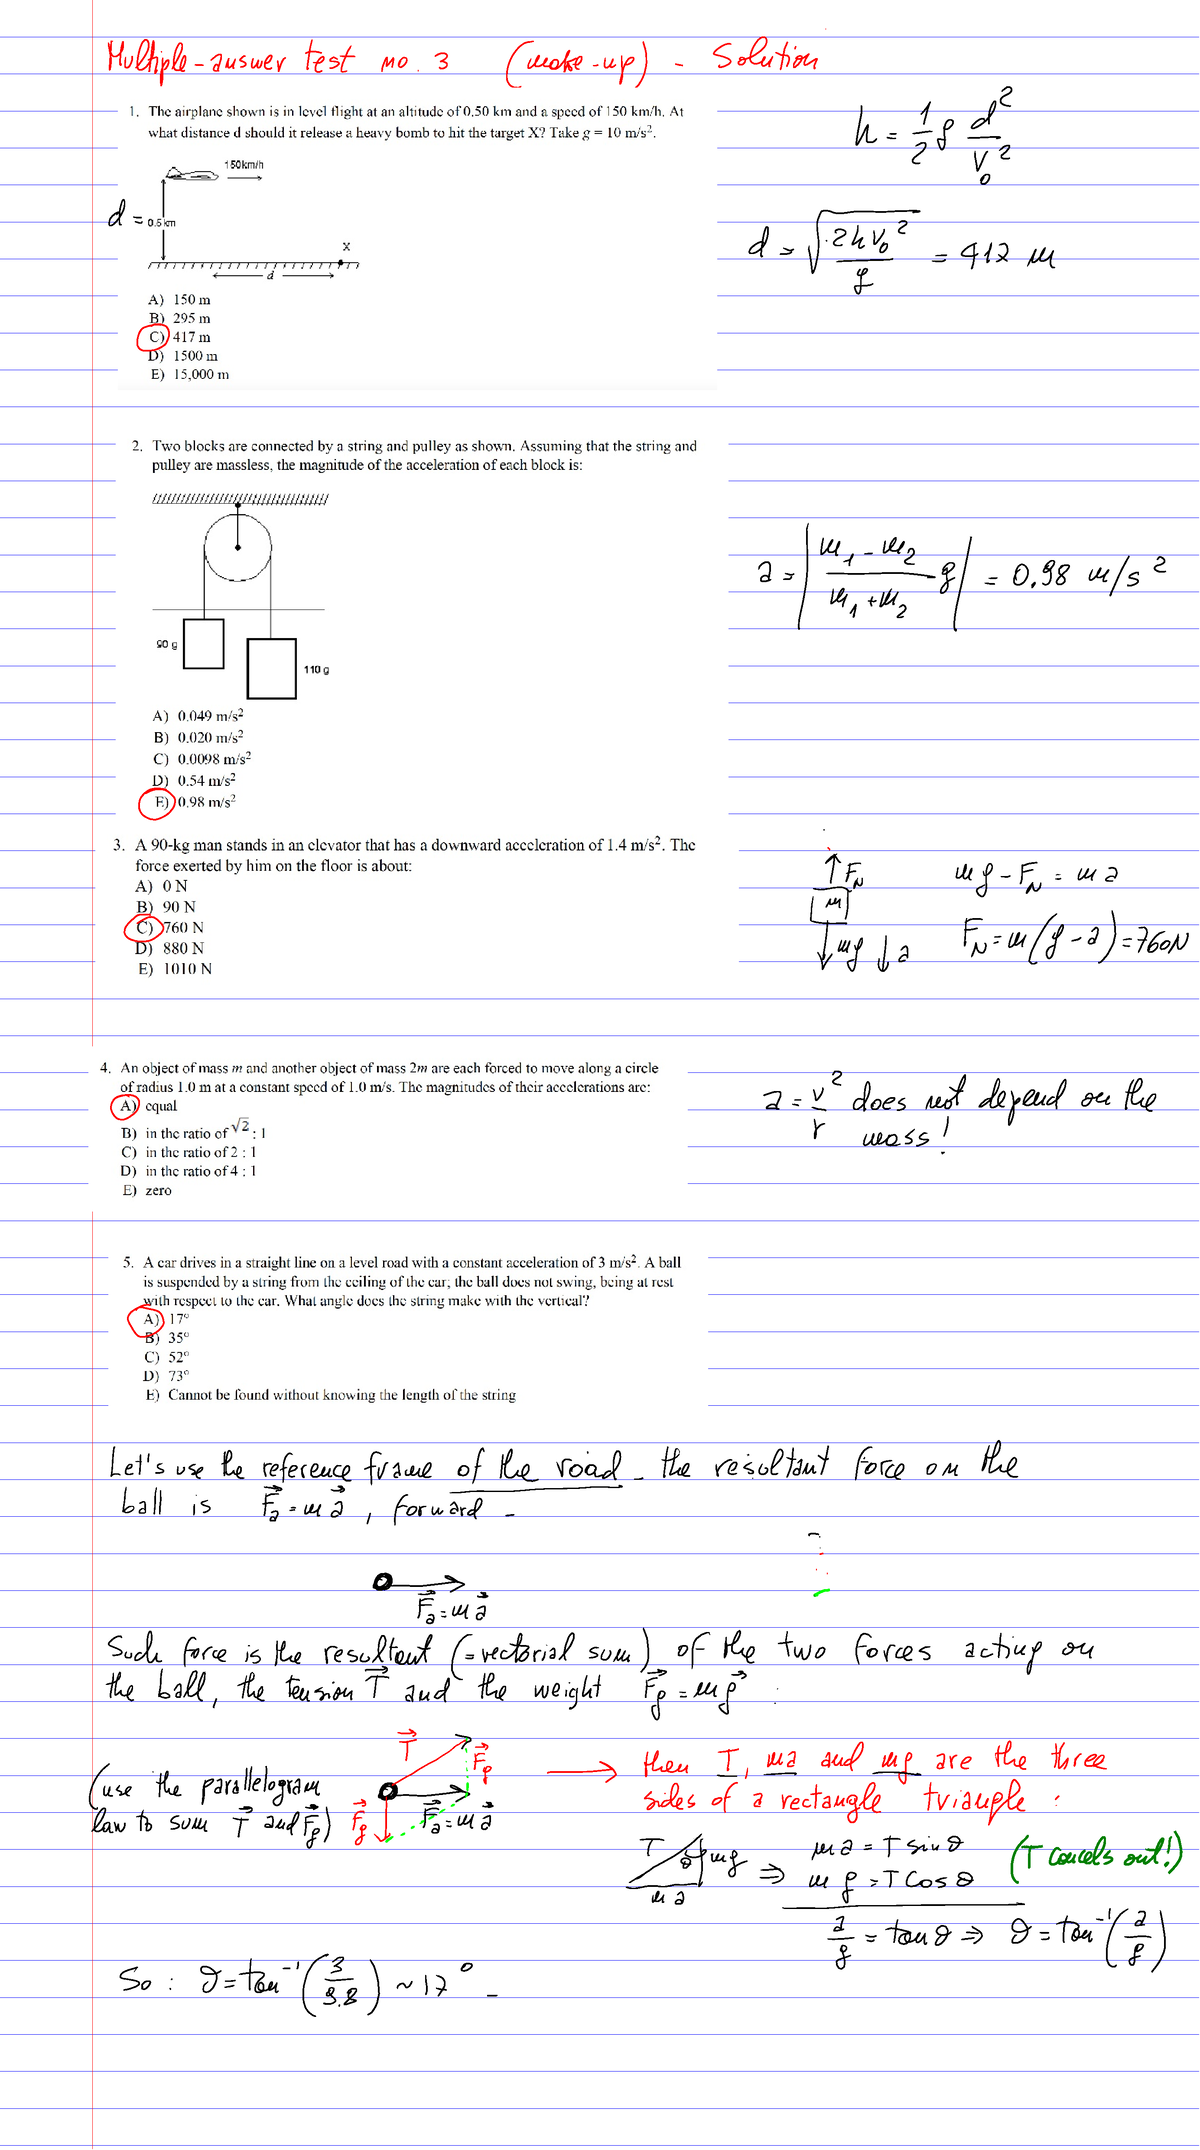 Multiple-answer test no. 3 (make-up) - Solution
1. The airplane shown is in level flight at an altitude of 0.50 km and a speed of 150 km/h. At
what distance d should it release a heavy bomb to hit the target X? Take g = 10 m/s².
150km/h
d = 0.5 km
X
d
A) 150 m
B) 295 m
C) 417 m
D) 1500 m
E) 15,000 m
h = 1/2 g d²/v₀²
d = √(2hv₀²/g) = 412 m
2. Two blocks are connected by a string and pulley as shown. Assuming that the string and
pulley are massless, the magnitude of the acceleration of each block is:
90 g
110 g
A) 0.049 m/s²
B) 0.020 m/s²
C) 0.0098 m/s²
D) 0.54 m/s²
E) 0.98 m/s²
a = |(m₁ - m₂)/(m₁ + m₂) g| = 0,98 m/s²
3. A 90-kg man stands in an elevator that has a downward acceleration of 1.4 m/s². The
force exerted by him on the floor is about:
A) 0 N
B) 90 N
C) 760 N
D) 880 N
E) 1010 N
F_N
m
mg a
mg - F_N = ma
F_N = m(g - a) = 760N
4. An object of mass m and another object of mass 2m are each forced to move along a circle
of radius 1.0 m at a constant speed of 1.0 m/s. The magnitudes of their accelerations are:
A) equal
B) in the ratio of √2 : 1
C) in the ratio of 2 : 1
D) in the ratio of 4 : 1
E) zero
a = v²/r does not depend on the
mass!
5. A car drives in a straight line on a level road with a constant acceleration of 3 m/s². A ball
is suspended by a string from the ceiling of the car; the ball does not swing, being at rest
with respect to the car. What angle does the string make with the vertical?
A) 17°
B) 35°
C) 52°
D) 73°
E) Cannot be found without knowing the length of the string
Let's use the reference frame of the road - the resultant force on the
ball is F⃗a = m a⃗, forward -
F⃗a = m a⃗
Such force is the resultant (= vectorial sum) of the two forces acting on
the ball, the tension T⃗ and the weight F⃗g = m g⃗ :
T⃗
F⃗g
(use the parallelogram
law to sum T⃗ and F⃗g)
F⃗g
F⃗a = m a⃗
→ then T, ma and mg are the three
sides of a rectangle triangle :
T θ mg
ma
⇒ ma = T sin θ
mg = T cos θ
(T cancels out!)
a/g = tan θ ⇒ θ = tan⁻¹(a/g)
So : θ = tan⁻¹(3/9.8) ~ 17° -